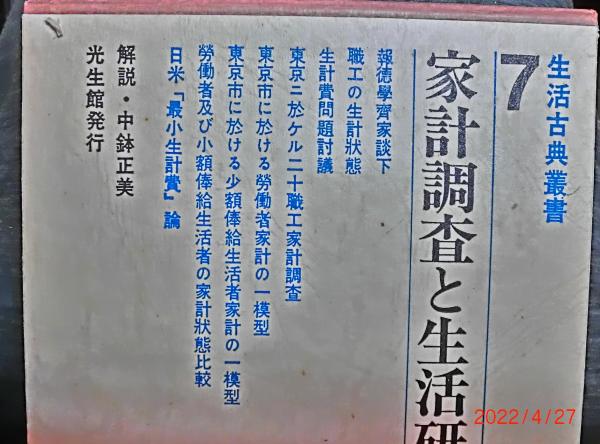 生活古典叢書
7
家計調査と生活研
報德學齊家談下
職工の生計狀態
生計費問題討議
東京ニ於ケル二十職工家計調査
東京市に於ける勞働者家計の一模型
東京市に於ける少額俸給生活者家計の一模型
勞働者及び小額俸給生活者の家計狀態比較
日米「最小生計費」論
解説・中鉢正美
光生館発行
2022/4/27